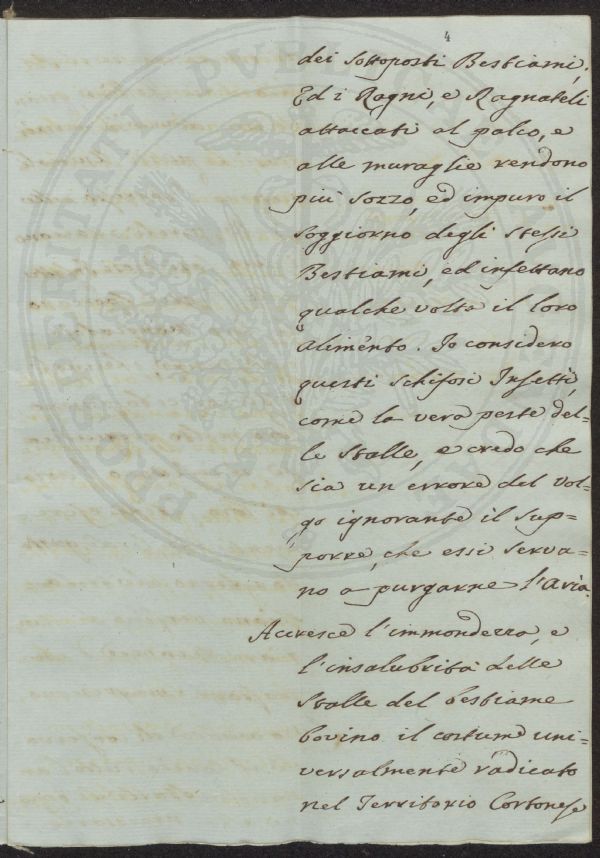 4
dei sottoposti Bestiami.
Ed i Ragni, e Ragnateli
attaccati al palco, e
alle muraglie rendono
più sozzo, ed impuro il
soggiorno degli stessi
Bestiami, ed infettano
qualche volta il loro
alimento. Io considero
questi schifosi Insetti,
come la vera peste del=
le stalle, e credo che
sia un errore del vol=
go ignorante il sup=
porre, che essi serva=
no a purgarne l'Aria.
Accresce l'immondezza, e
l'insalubrità delle
stalle del bestiame
bovino il costume uni=
versalmente radicato
nel Territorio Cortonese